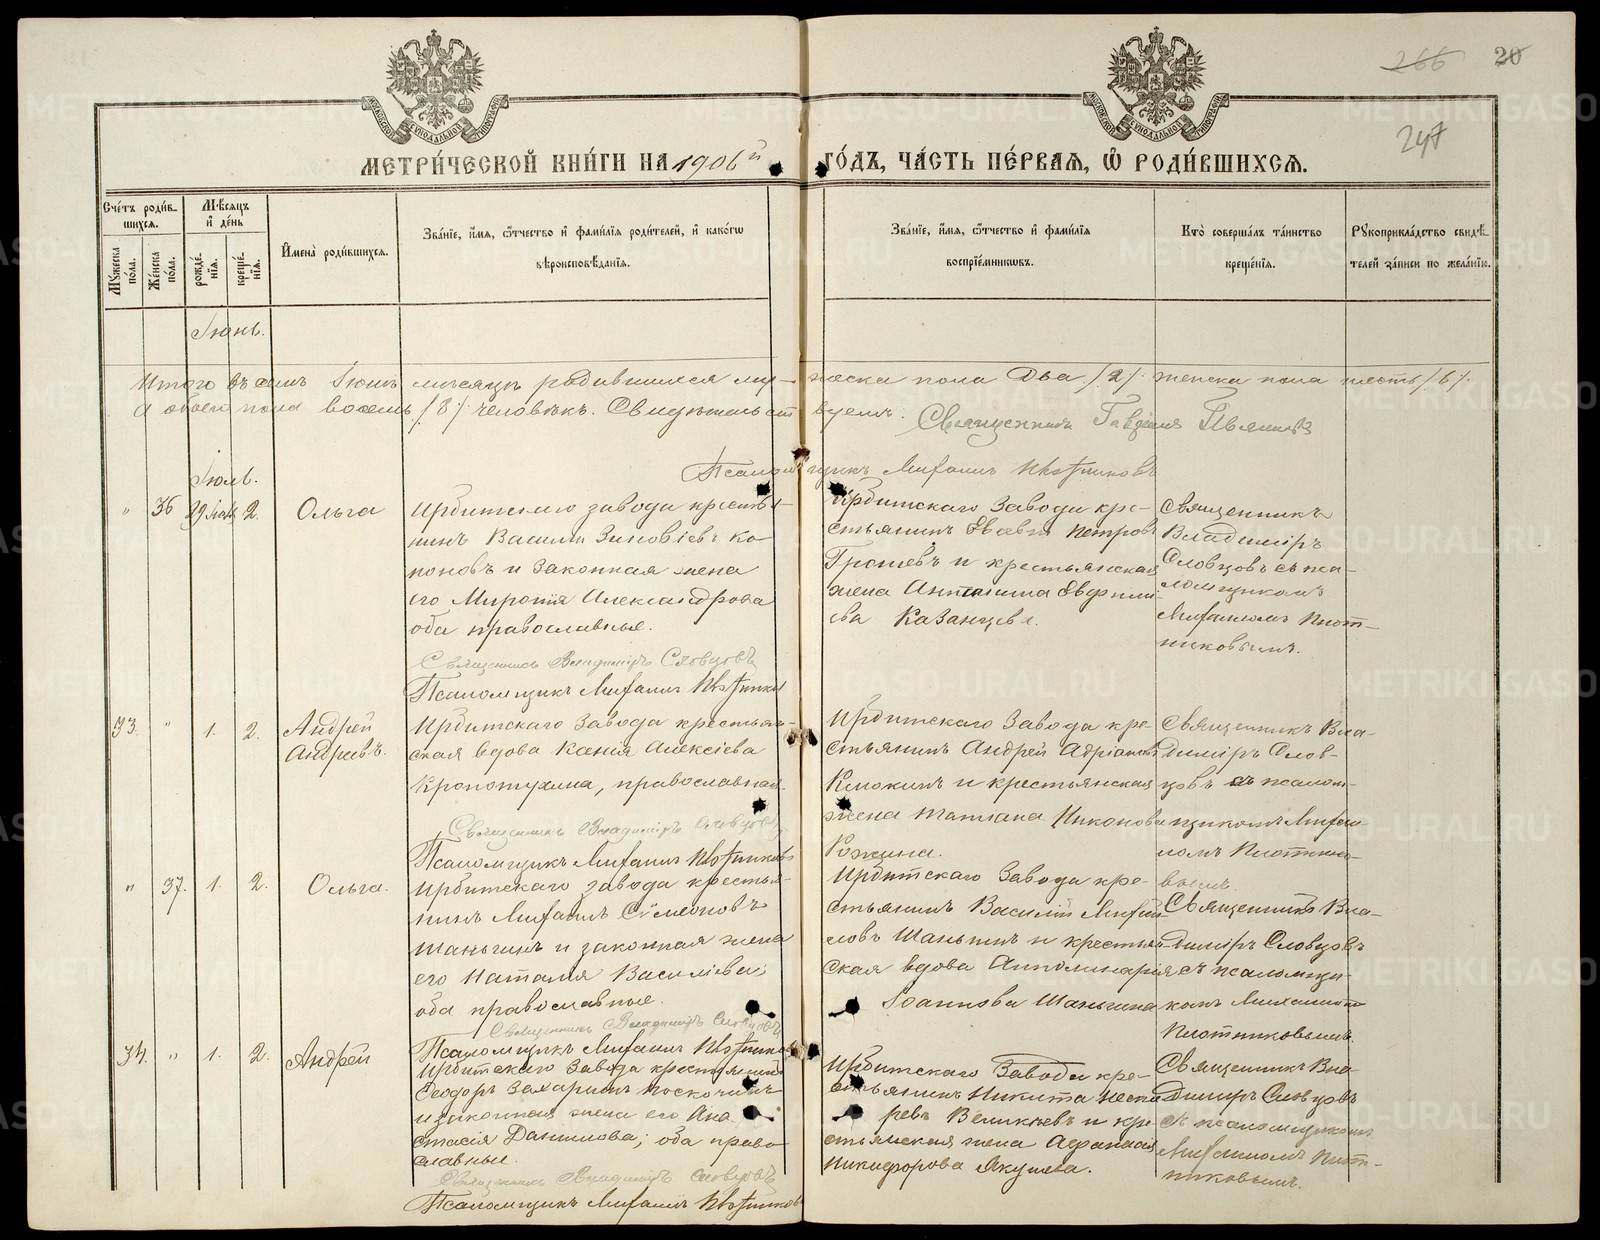 266 20
247
МЕТРИ́ЧЕСКОЙ КНИ́ГИ НА 1906й ГО́ДЪ, ЧА́СТЬ ПЕ́РВАЯ, Ѿ РОДИ́ВШИХСЯ.
Сче́тъ роди́вшихся.
Мꙋ́жеска по́ла.
Же́нска по́ла.
Мѣ́сяцъ и҆ де́нь
рожде́нїя.
креще́нїя.
И҆мена̀ роди́вшихся.
Зва́нїе, и҆́мя, ѻ҆́тчество и҆ фами́лїя роди́телей, и҆ како́гѡ
вѣроисповѣ́данїя.
Зва́нїе, и҆́мя, ѻ҆́тчество и҆ фами́лїя
воспрїе́мникѡвъ.
Кто̀ соверша́лъ та́инство
креще́нїя.
Рꙋкоприкла́дство свидѣ́-
телей за́писи по жела́нїю.
Іюнь.
Итого въ семъ Іюнѣ мѣсяцѣ родившихся мужеска пола два /2/. женска пола шесть /6/.
А обоего пола восемь /8/ человѣкъ. Свидѣтельствуемъ:
Священникъ
Псаломщикъ Михаилъ Плотниковъ
Іюль.
" 36 29 Іюня 2. Ольга
Ирбитскаго завода крестья-
нинъ Василій Зиновіевъ Ко-
ноновъ и законная жена
его Миропія Александрова
оба православные.
Священникъ Владиміръ Словцовъ
Псаломщикъ Михаилъ Плотниковъ
Ирбитскаго Завода кре-
стьянинъ Евсевій Петровъ
Грошевъ и крестьянская
жена Антонина Евфими-
ева Казанцева.
Священникъ
Владиміръ
Словцовъ съ пса-
ломщикомъ
Михаиломъ Плот-
никовымъ.
33. " 1. 2. Андрей
Андреевъ.
Ирбитскаго Завода крестьян-
ская вдова Ксенія Алексіева
Кропотухина, православная.
Священникъ Владиміръ Словцовъ
Псаломщикъ Михаилъ Плотниковъ
Ирбитскаго Завода кре-
стьянинъ Андрей Адріановъ
Клюкинъ и крестьянская
жена Татіана Никонова
Рожина.
Священникъ Вла-
диміръ Слов-
цовъ съ псалом-
щикомъ Михаи-
ломъ Плотнико-
вымъ.
" 37. 1. 2. Ольга.
Ирбитскаго завода крестья-
нинъ Михаилъ Сѵмеоновъ
Шаньгинъ и законная жена
его Наталія Василіева;
оба православные.
Священникъ Владиміръ Словцовъ
Псаломщикъ Михаилъ Плотниковъ
Ирбитскаго Завода кре-
стьянинъ Василій Михаи-
ловъ Шаньгинъ и крестьян-
ская вдова Апполинарія
Іоаннова Шаньгина
Священникъ Вла-
диміръ Словцовъ
съ псаломщи-
комъ Михаиломъ
Плотниковымъ.
34. " 1. 2. Андрей
Ирбитскаго Завода крестьянинъ
Ѳеодоръ Захаринъ Поскочинъ
и законная жена его Ана-
стасія Данилова; оба право-
славные.
Священникъ Владиміръ Словцовъ
Псаломщикъ Михаилъ Плотниковъ
Ирбитскаго Завода кре-
стьянинъ Никита
ревъ и кре-
стьянская жена Афанасія
Никифорова Якушева.
Священникъ Вла-
диміръ Словцовъ
съ псаломщикомъ
Михаиломъ Плот-
никовымъ.